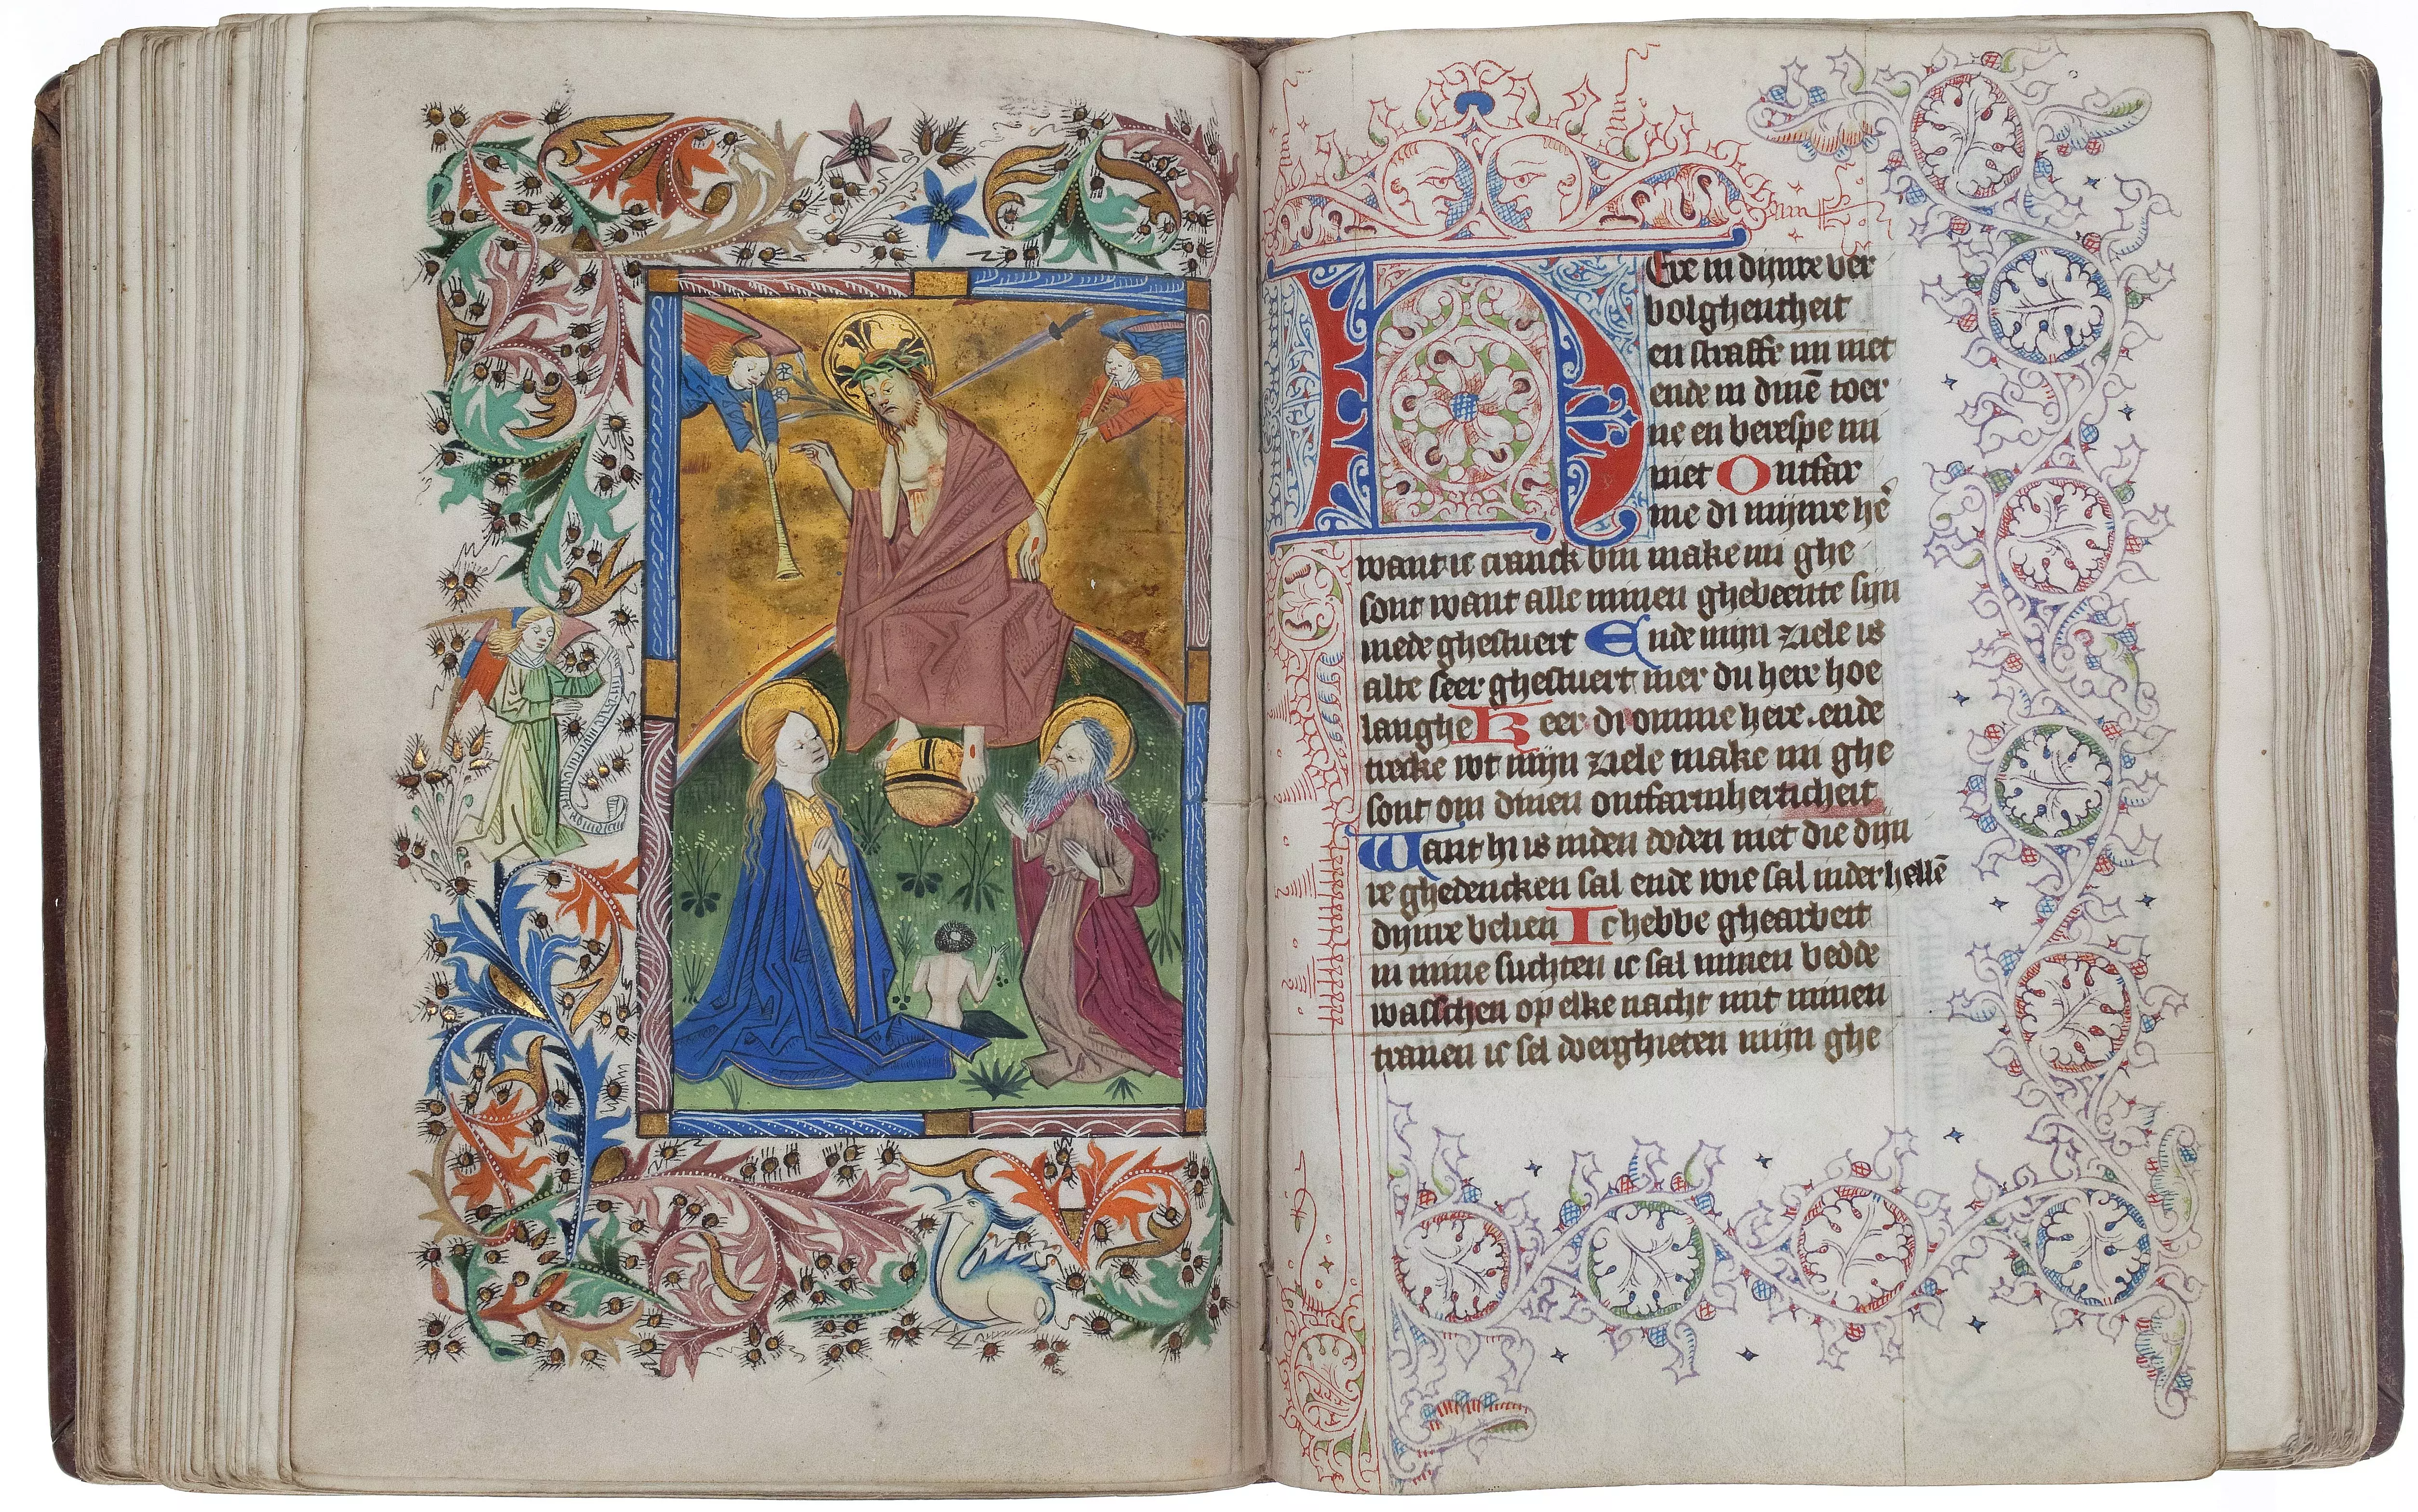 HEre in dijnre ver
bolghentheit
en straffe mi niet
ende in dinē toer
ne en berespe mi
niet Ontfar
me di mijnre hē
want ic cranck bin make mi ghe
sont want alle minen ghebeente sijn
mede ghestuert Ende mijn ziele is
alte seer ghestuert mer du here hoe
langhe Keer di omme here. ende
trecke wt mijn ziele make mi ghe
sont om dinen ontfarmherticheit
Want hi is inden doden niet die dijn
re ghedencken sal ende wie sal inder hellē
dijnre belien Ic hebbe ghearbeit
in mine suchten ic sal minen bedde
wasschen op elke nacht mit minen
tranen ic sel doerghieten mijn ghe